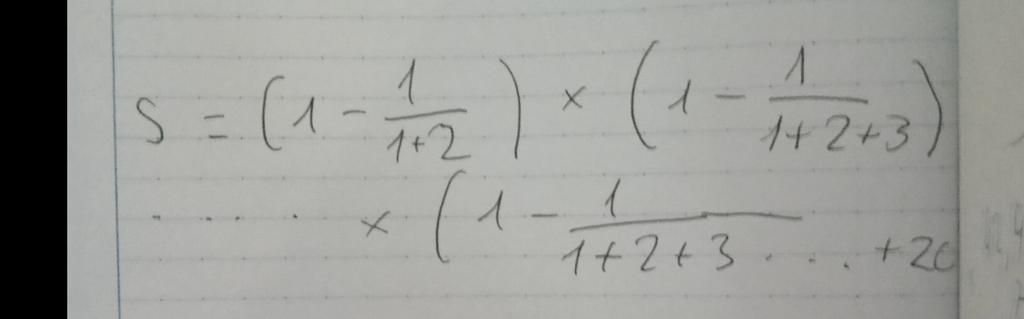 S = (1 - 1/(1+2)) × (1 - 1/(1+2+3))
. . . . × (1 - 1/(1+2+3 . . . . +20